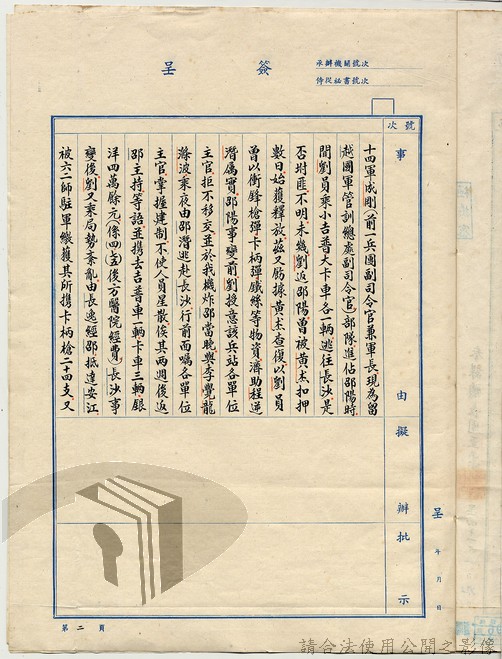 承辦機關號次
侍從秘書號次
簽呈
號次
事由
擬辦
批示
十四軍成剛(前一兵團副司令官兼軍長現為留
越國軍管訓總處副司令官)部隊進佔邵陽時
間劉員乘小吉普大卡車各一輛逃往長沙是
否坿匪不明未幾劉返邵陽曾被黃杰扣押
數日始獲釋放茲又勛據黃杰查復以劉員
曾以衝鋒槍彈卡柄彈鐵絲等物資濟助程逆
潛厲實邵陽事變前劉授意該兵站各單位
主官拒不移交並於我機炸邵當晚與李覺龍
滌波乘夜由邵潛逃赴長沙行前面囑各單位
主官掌握建制不使人員星散俟其兩週後返
邵主持等語並携去吉普車一輛卡車三輛銀
洋四萬餘元(係四(芸)後方醫院經費)長沙事
變後劉又乘局勢紊亂由長逸經邵抵達安江
被六二師駐軍緝獲其所携卡柄槍二十四支又
呈
年月日
第二頁
請合法使用公開之影像